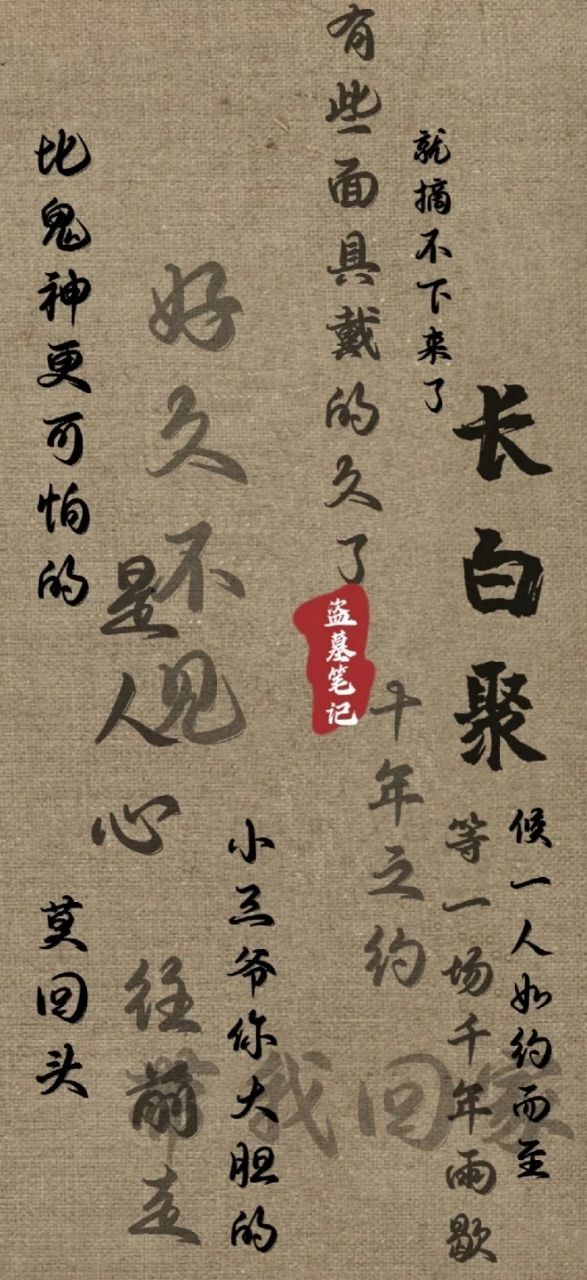 长白聚
等一场千年雨歇
候一人如约而至
有些面具戴的久了
就摘不下来了
十年之约
盗墓笔记
好久不见
比鬼神更可怕的
是人心
小三爷你大胆的
往前走
莫回头
带我回家